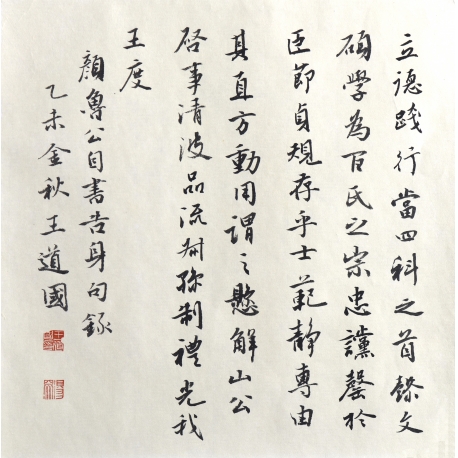 立德踐行當四科之首懿文
碩學為百氏之宗忠讜罄於
臣節貞規存乎士範靜專由
其直方動用謂之懸解山公
啓事清波品流叔孫制禮光我
王度
顏魯公自書告身句錄
乙未金秋王道國